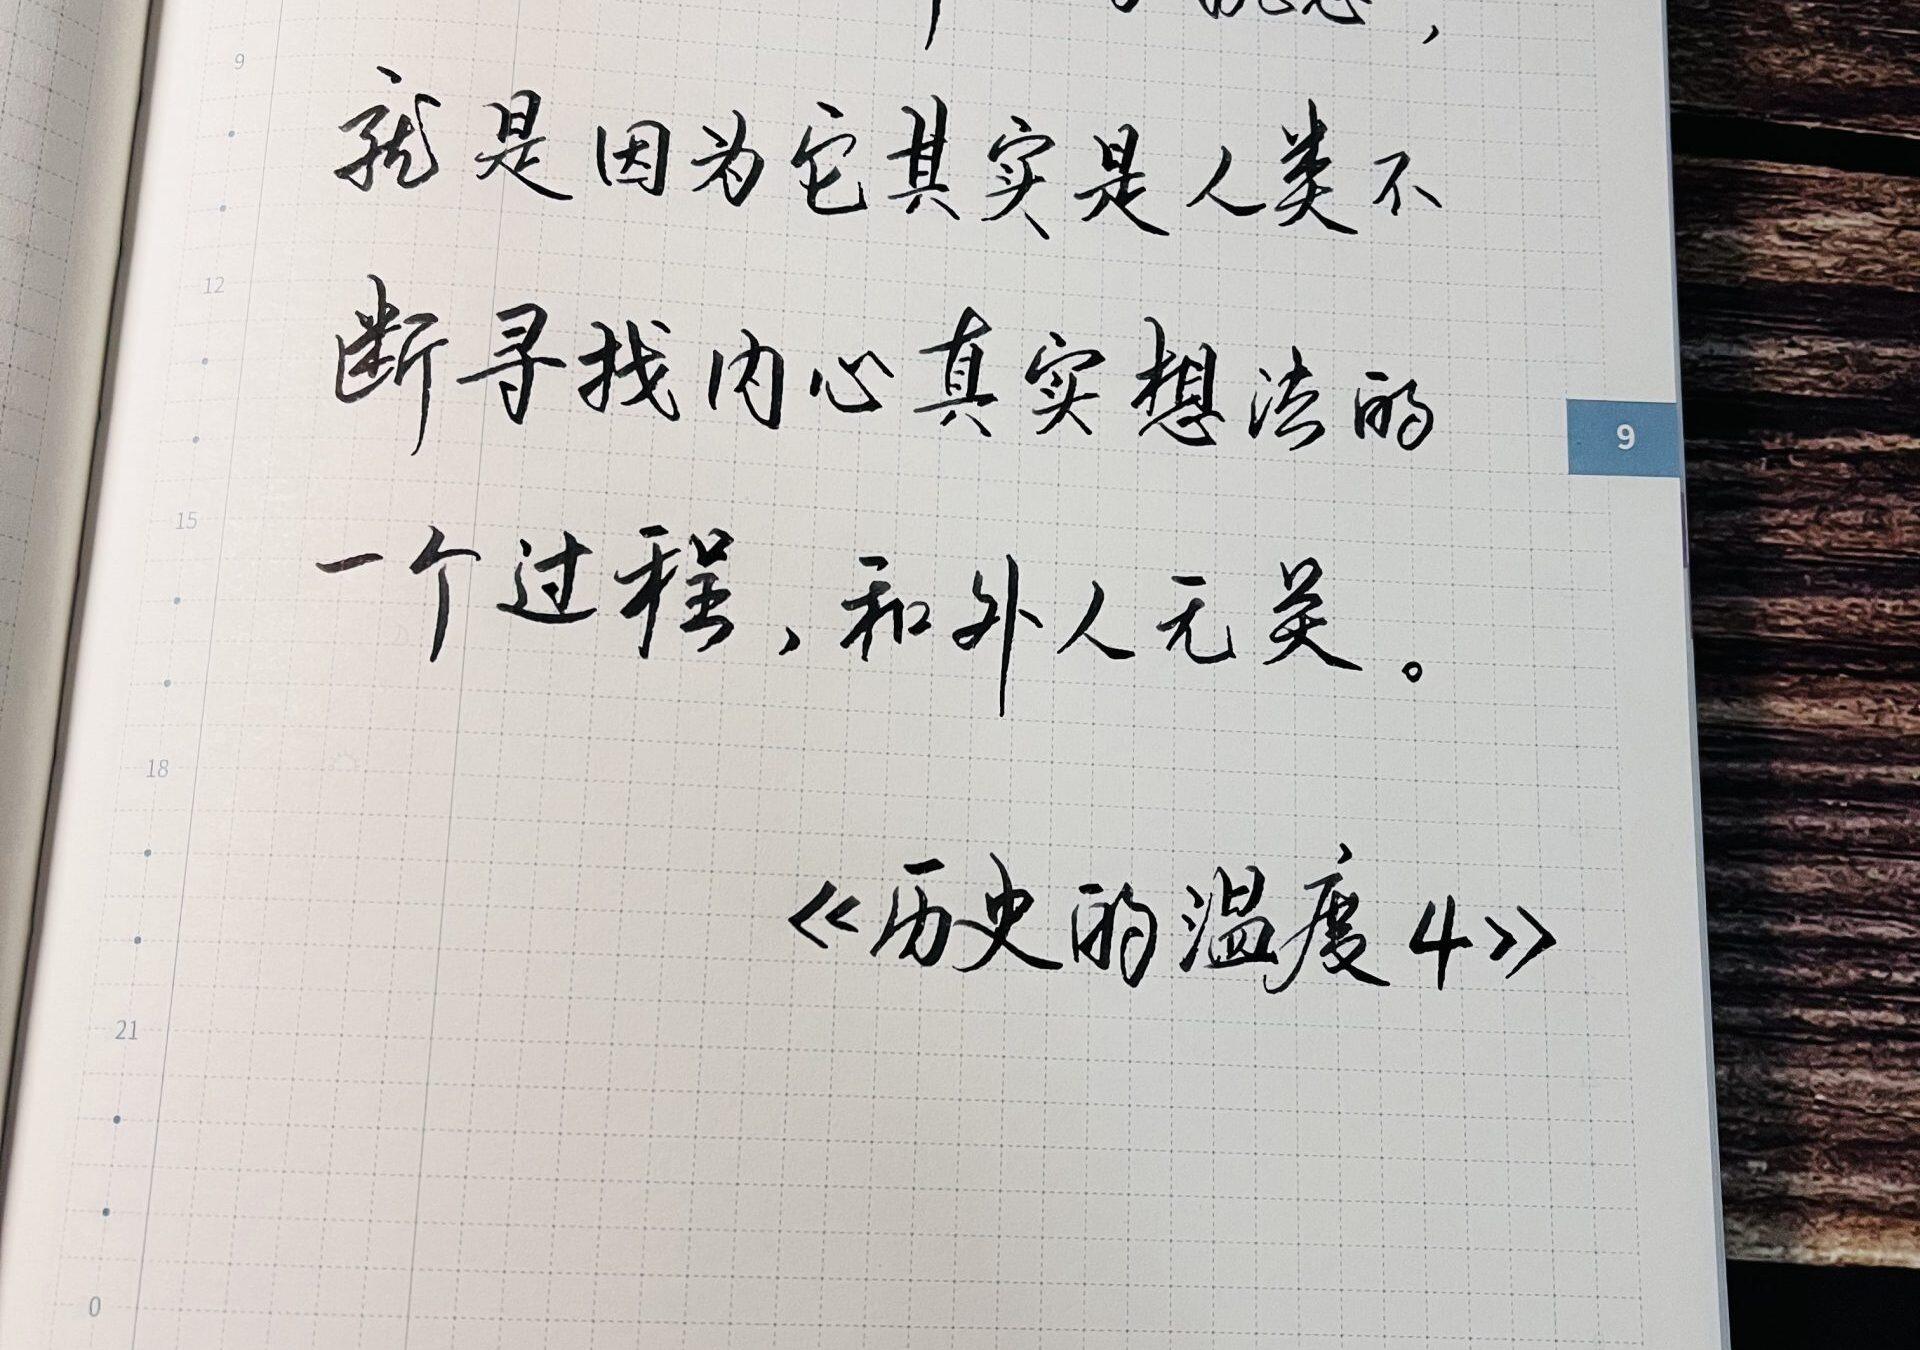 就是因为它其实是人类不
断寻找内心真实想法的
一个过程，和外人无关。
《历史的温度4》
9
12
15
18
21
0
9